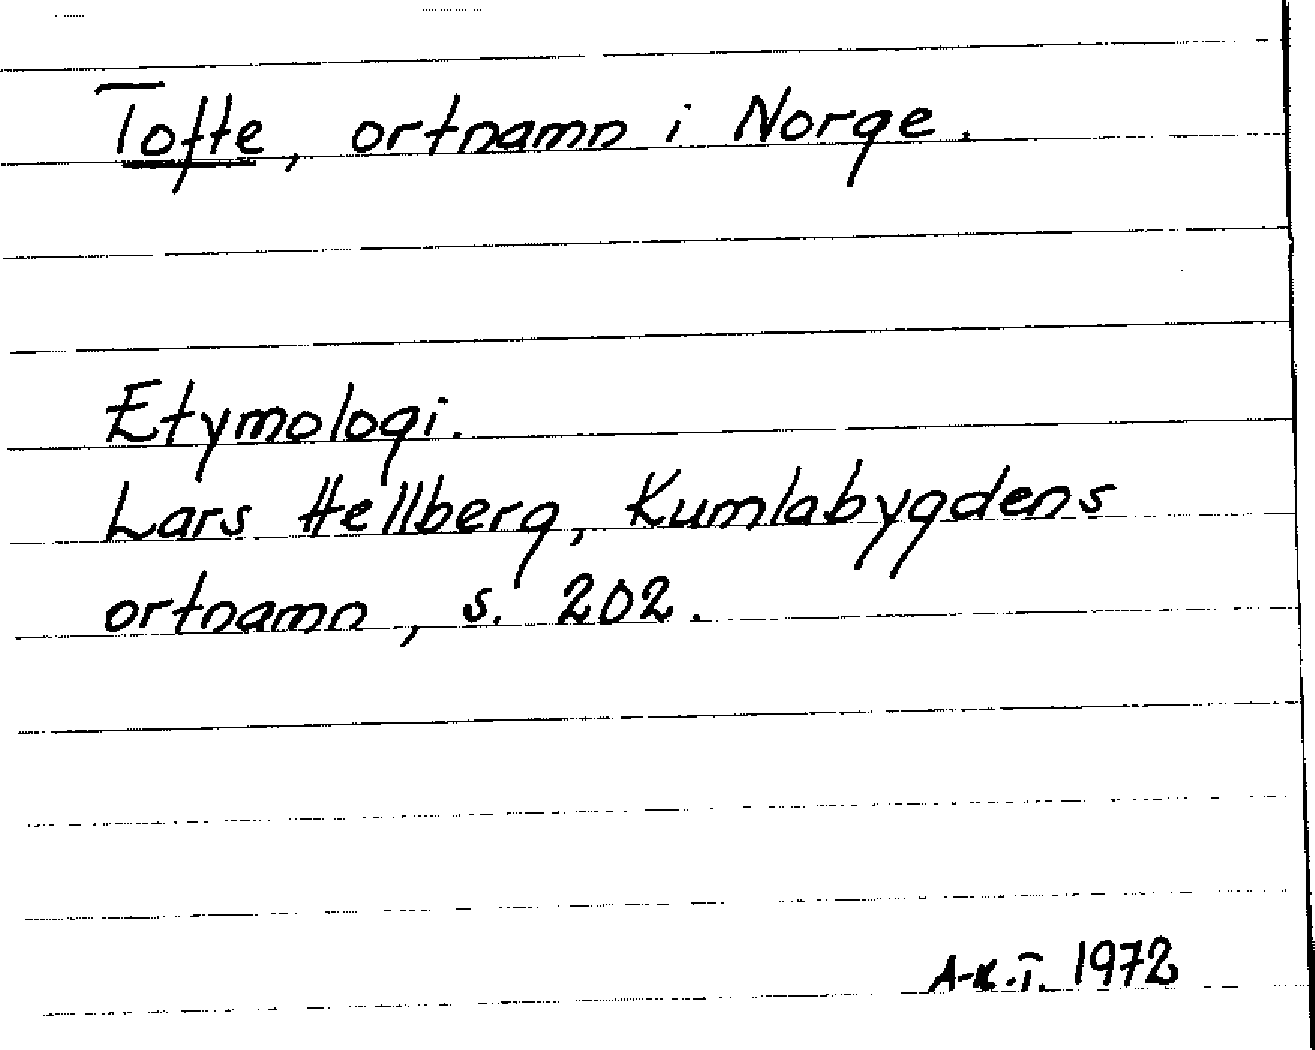 Tofte, ortnamn i Norge.
Etymologi.
Lars Hellberg, Kumlabygdens
ortnamn, s. 202.
A-K.T. 1972